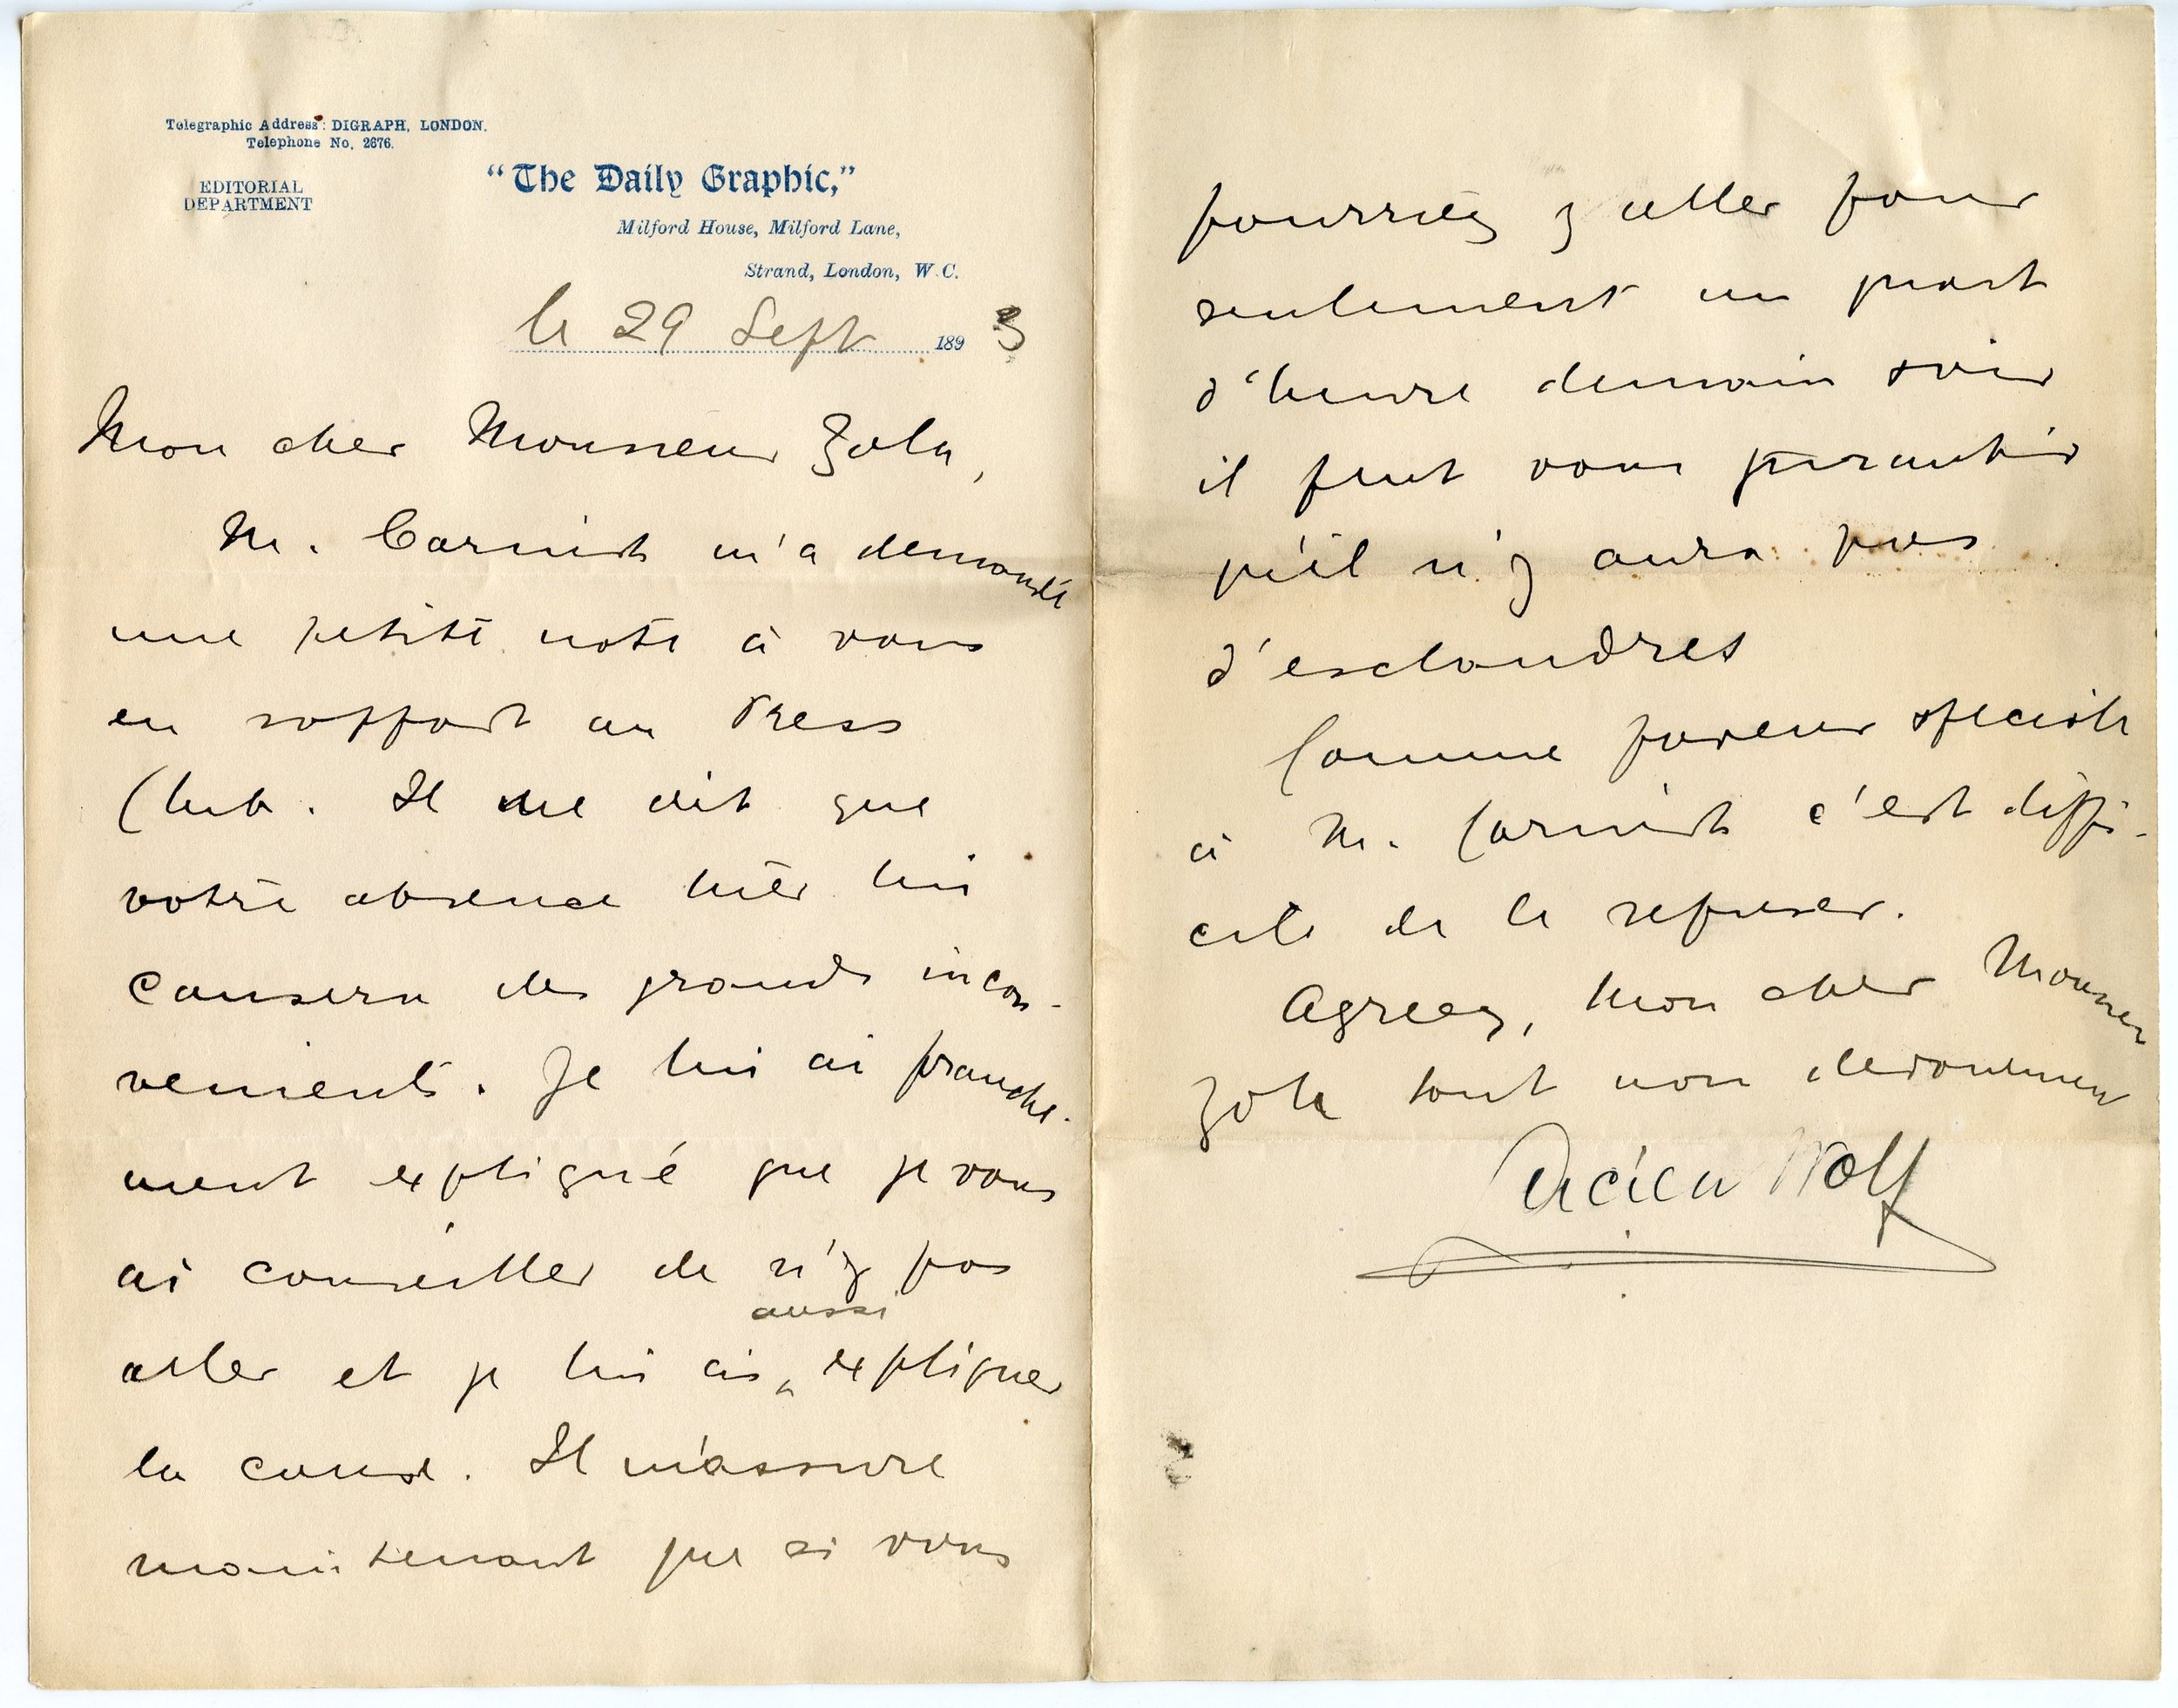 Telegraphic Address: DIGRAPH, LONDON.
Telephone No. 2676.
EDITORIAL
DEPARTMENT
"The Daily Graphic,"
Milford House, Milford Lane,
Strand, London, W.C.
le 29 Sept 1893
Mon cher Monsieur Zola,
M. m'a demandé
une petite note à vous
en rapport au Press
Club. Il me dit que
votre absence hier lui
causera des grands incon-
venients. Je lui ai franche-
ment expliqué que je vous
ai conseiller de n'y pas
aller et je lui ai aussi expliquer
la cause. Il m'assure
maintenant que si vous
pourriez y aller pour
seulement un quart
d'heure demain soir
il peut vous garantir
qu'il n'y aura pas
d'esclandres
Comme faveur speciale
à M. c'est diffi-
cile de le refuser.
Agreez, mon cher Monsieur
Zola tout mon devouement
Lucien Wolf